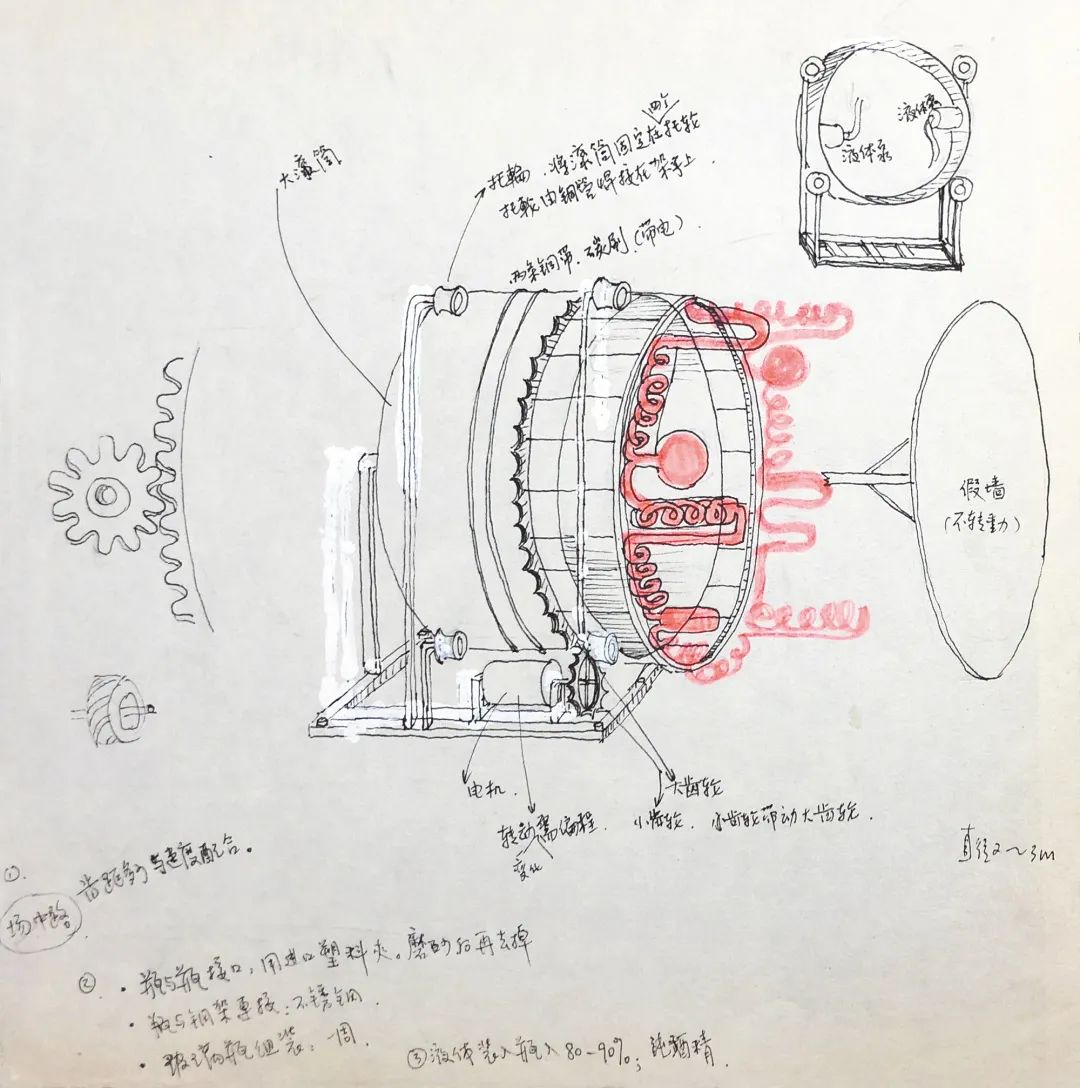 液体泵
液体泵
大滚筒
两个
托輪．将滚筒固定在托轮
托轮由钢管焊接在架子上．
两条铜带．碳刷（带电）．
假墙
（不转動）
电机．
大齿轮
转动需编程．
变化
小齿轮．小齿轮带动大齿轮．
直径2～3m
①．
齿距与速度配合。
②
・瓶与瓶接口，用进口塑料夹。磨砂后再去掉
・瓶与钢架焊接：不锈钢．
・玻璃瓶组装：一周．
③液体装入瓶入80-90%；纯酒精．